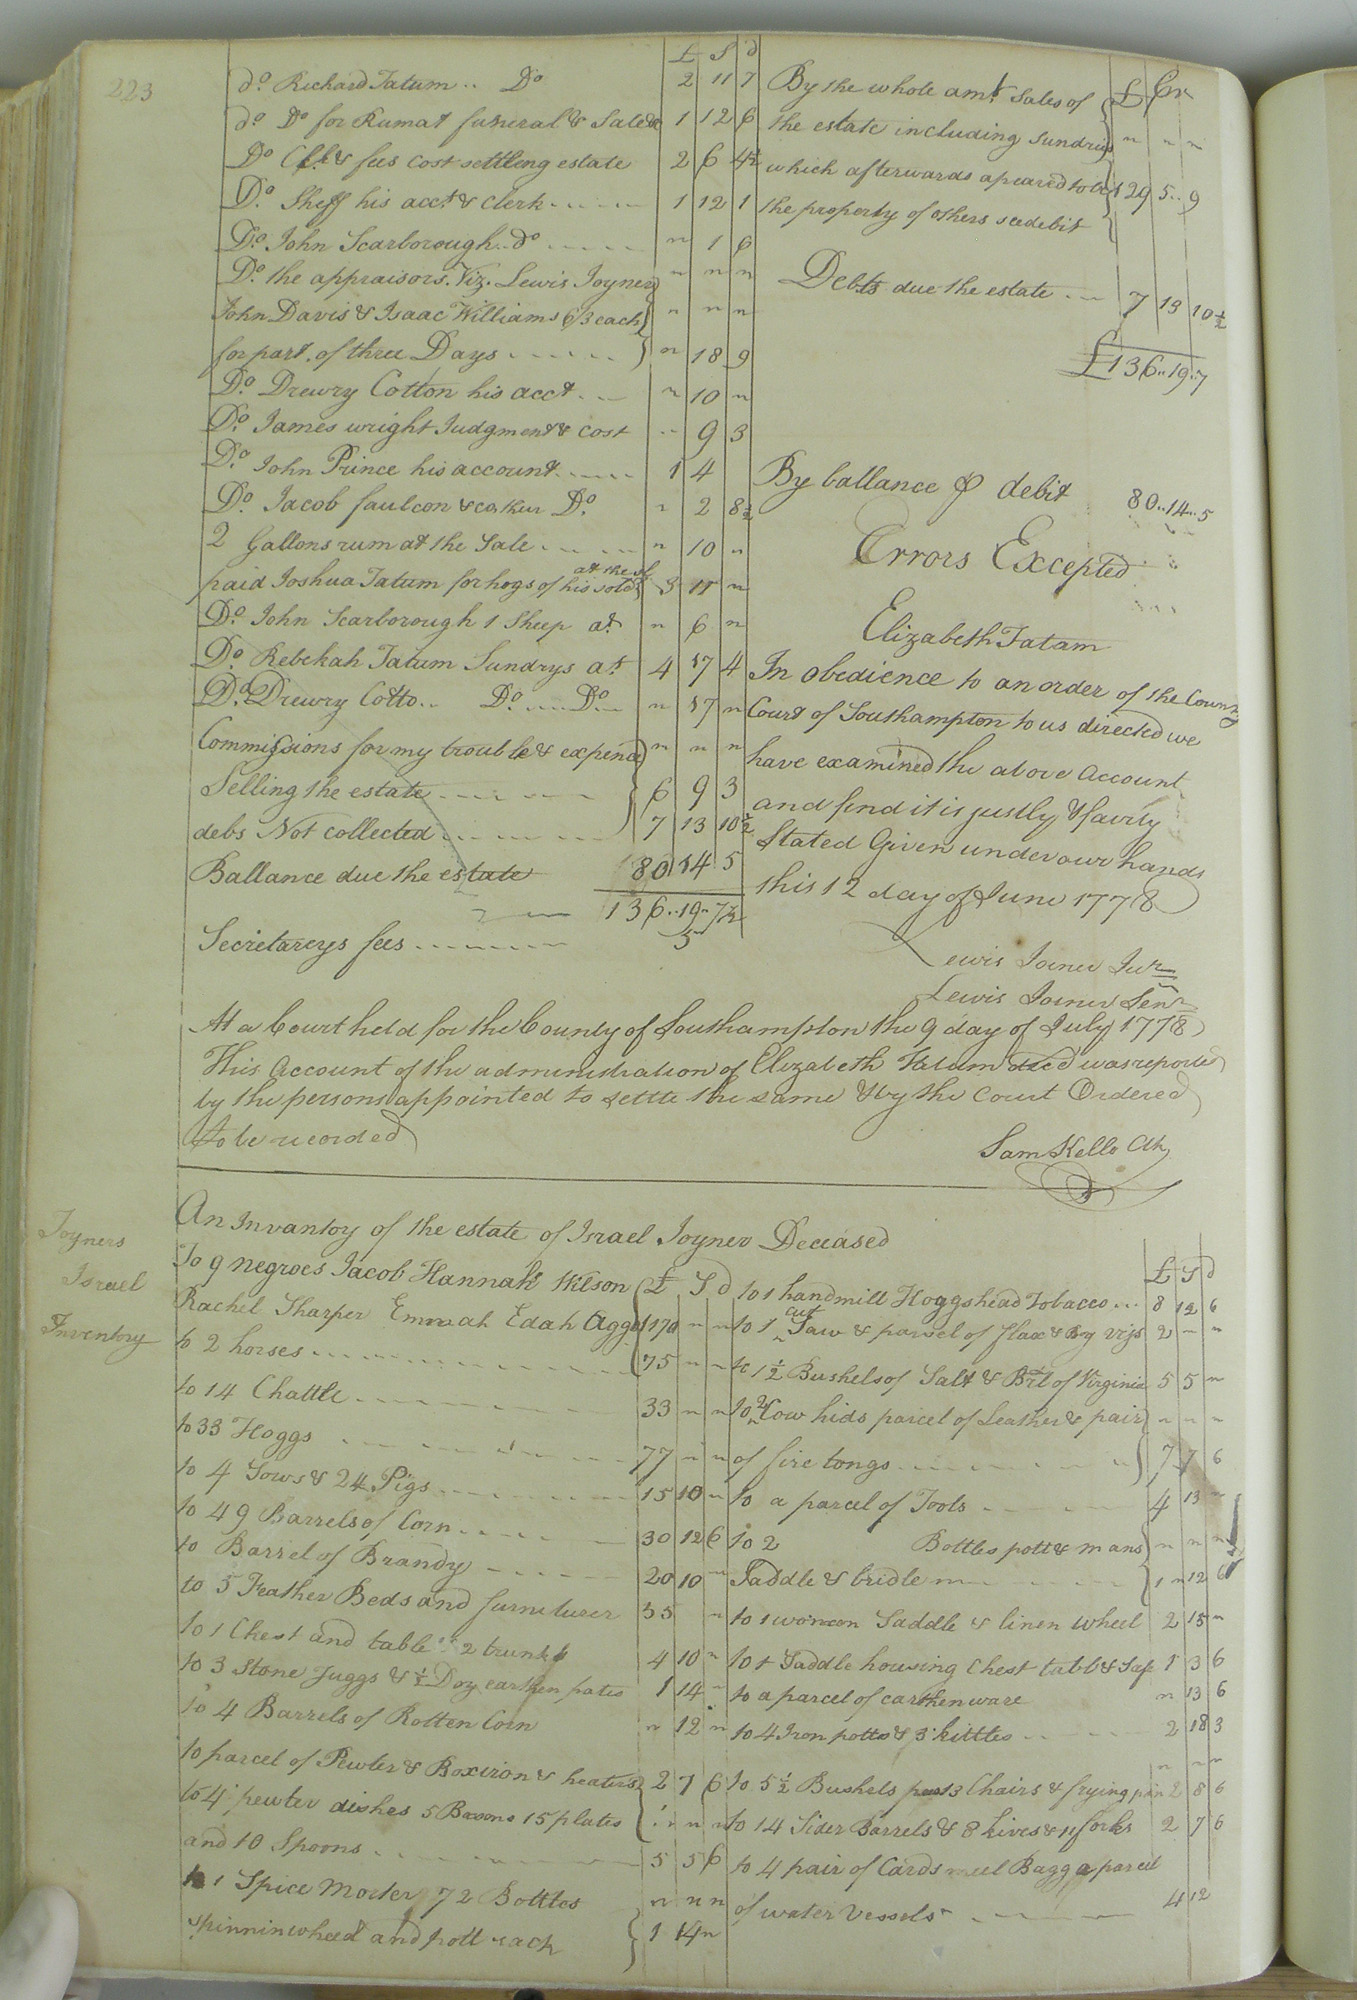 223
£ S d
do Richard Tatum .. Do 2 11 7
do Do for Rumat funeral & Sale 1 12 6
Do Clk & fees cost settleng estate 2 6 4½
Do. Sheff his acct & clerk 1 12 1
Do. John Scarborough .. do " 1 6
Do. the appraisors. Viz. Lewis Joyner " " "
John Davis & Isaac Williams 6/3 each " " "
for part. of three Days " 18 9
Do. Drewry Cotton his acct " 10 "
Do. James wright Judgment & cost " 9 3
Do. John Prince his account 1 4
Do. Jacob faulcon Do. " 2 8½
2 Gallons rum at the Sale " 10 "
at the sl
paid Joshua Tatum for hogs of his sold 3 11 "
Do. John Scarborough 1 Sheep at " 6 "
Do. Rebekah Tatum Sundrys at 4 17 4
Do. Drewry Cotto.. Do. Do. " 17 "
Commissions for my trouble & expence " " "
Selling the estate 6 9 3
debs Not collected 7 13 10½
Ballance due the estate 80 14 5
136..19..7½
Secretareys fees 5"
£ Cr
By the whole amt. Sales of
the estate including Sundries " " "
which afterwards apeared to be 129 5.. 9
the property of others see debit
Debts due the estate 7 13 10½
£136..19..7
By ballance ⅌ debit 80..14..5
Errors Excepted
Elizabeth Tatam
In obedience to an order of the County
Court of Southampton to us directed we
have examined the above Account
and find it is justly & fairly
Stated Given under our hands
this 12 day of June 1778
Lewis Joiner Jur
Lewis Joiner Senr
At a Court held for the County of Southampton the 9 day of July 1778
This Account of the administration of Elizabeth Tatum decd was reported
by the persons appointed to settle the same & by the Court Ordered
to be recorded
Sam Kello Clk
Joyners
Israel
Inventory
An Invantory of the estate of Israel Joyner Deceased
To 9 negroes Jacob Hannah Wilson £ S d
Rachel Sharper Emmah Edah Agga 1170 " "
to 2 horses 75 " "
to 14 Chattle 33 " "
to 33 Hoggs 77 " "
to 4 Sows & 24 Pigs 15 10 "
to 49 Barrels of Corn 30 12 6
to Barrel of Brandy 20 10 "
to 5 Feather Beds and furniturer 35 "
to 1 Chest and table 2 trunks 4 10 "
to 3 Stone Juggs & ½ Doz earthen pates 1 14 "
to 4 Barrels of Rotten Corn " 12 "
to parcel of Pewter & Boxiron & heaters 2 7 6
to 4 pewter dishes 5 Basons 15 plates " " "
and 10 Spoons 5 5 6
to 1 Spice Morter 72 Bottles " " "
spinninwheel and pott rack 1 14 "
£ S d
to 1 handmill Hoggshead Tobacco 8 12 6
to 1 cut Saw & parcel of flax & 2 " "
to 1½ Bushels of Salt & Brl of Virginia 5 5 "
to 2 Cow hids parcel of Leather & pair " " "
of fire tongs 7 7 6
to a parcel of Tools 4 13 "
to 2 Bottles pott & mans " " "
Saddle & bridle 1 " 12 6
to 1 woman Saddle & linen wheel 2 15 "
to 1 Saddle housing Chest tabl & Safe 1 3 6
to a parcel of earthen ware " 13 6
to 4 Iron potts & 3 kittles 2 18 3
" " "
to 5½ Bushels 3 Chairs & frying pan 2 8 6
to 14 Sider Barrels & 8 hives & 11 forks 2 7 6
to 4 pair of Cards meel Bagg a parcel
of water Vessels 4 12